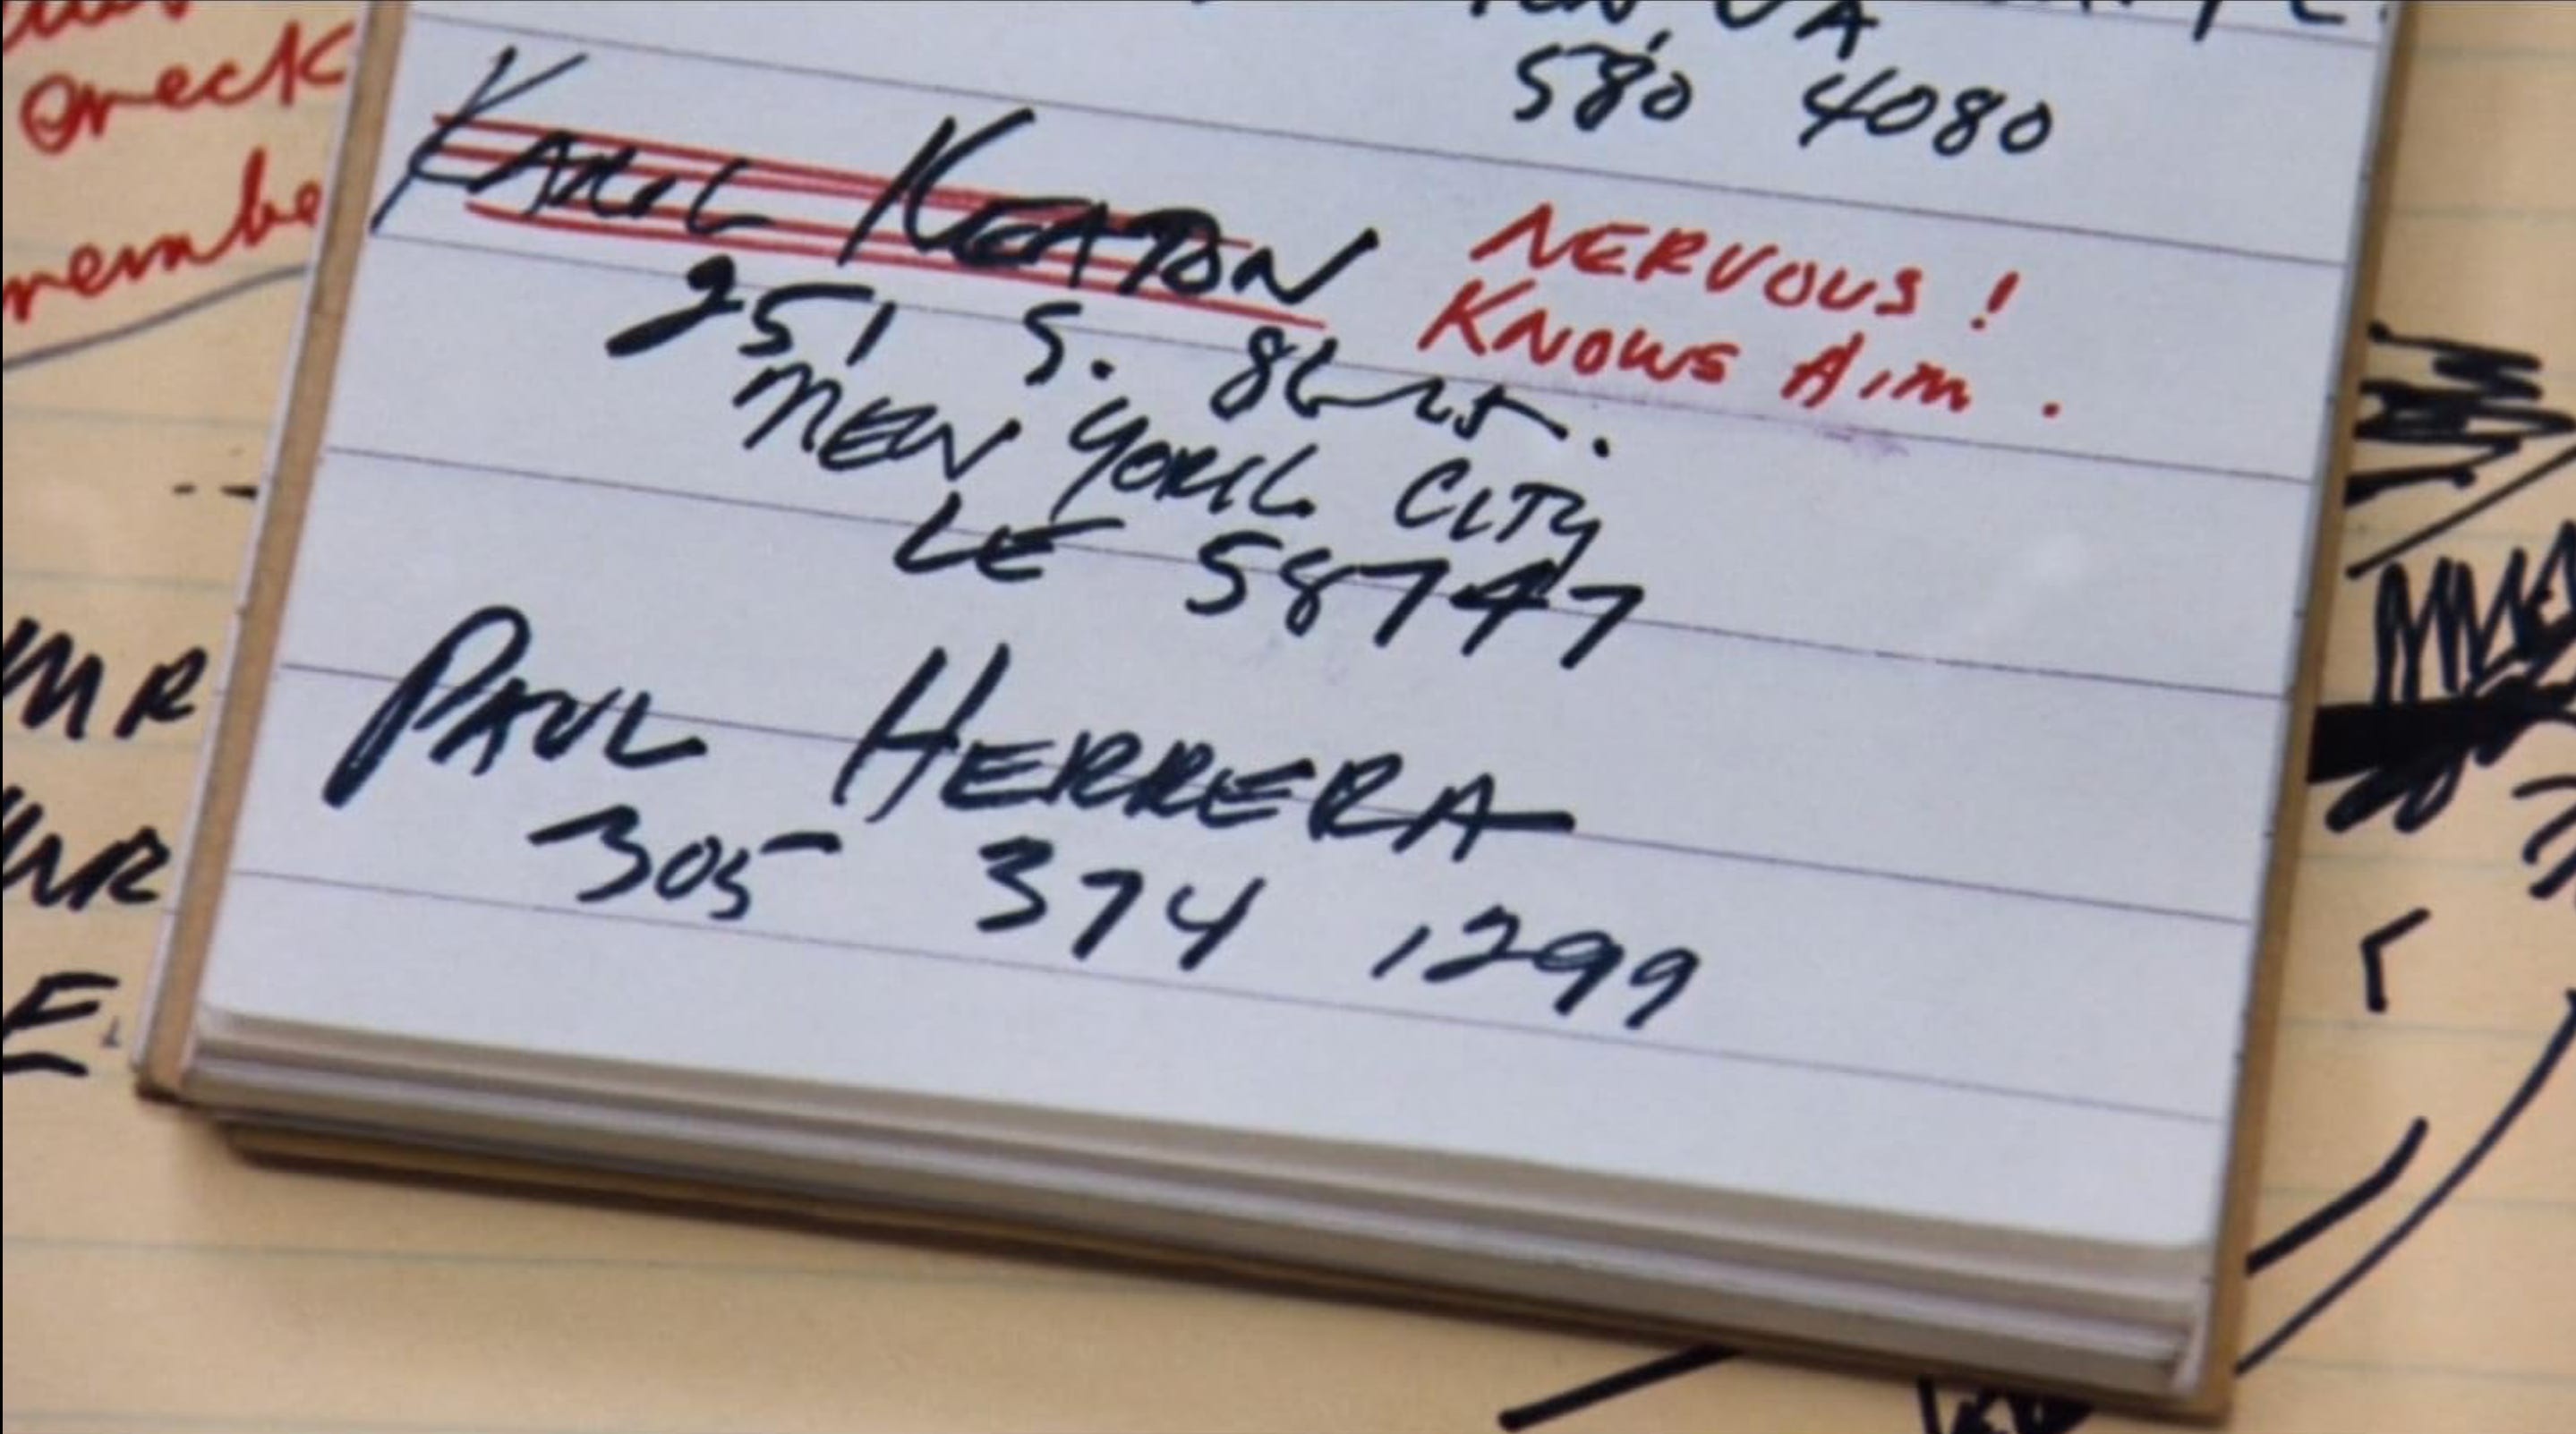 check
remembe
580 4080
KARL KEATON
NERVOUS!
KNOWS AIM.
251 S. 8th ST.
NEW YORK CITY
LE 58747
PAUL HERRERA
305 374 1299
MR
MR
E.